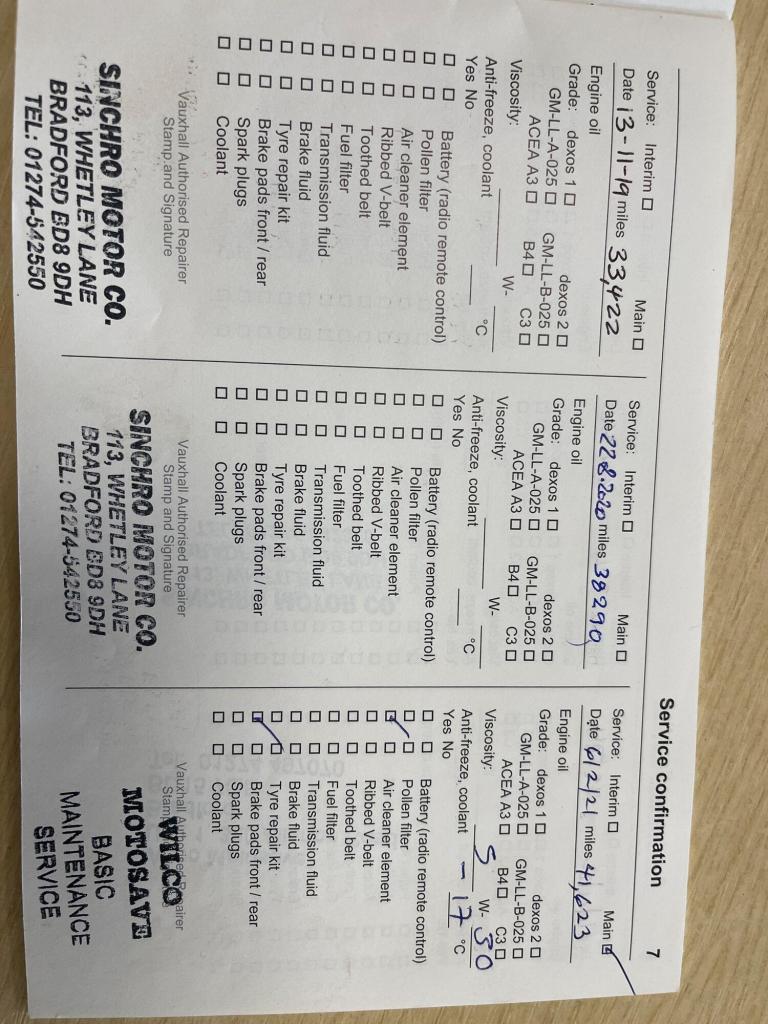 Service confirmation 7
Service: Interim Main
Date 13-11-19 miles 33,422
Engine oil
Grade: dexos 1 dexos 2
GM-LL-A-025 GM-LL-B-025
ACEA A3 B4 C3
Viscosity: W-
Anti-freeze, coolant °C
Yes No
Battery (radio remote control)
Pollen filter
Air cleaner element
Ribbed V-belt
Toothed belt
Fuel filter
Transmission fluid
Brake fluid
Tyre repair kit
Brake pads front / rear
Spark plugs
Coolant
Vauxhall Authorised Repairer
Stamp and Signature
SINCHRO MOTOR CO.
113, WHETLEY LANE
BRADFORD BD8 9DH
TEL: 01274-542550
Service: Interim Main
Date 22.8.2020 miles 38290
Engine oil
Grade: dexos 1 dexos 2
GM-LL-A-025 GM-LL-B-025
ACEA A3 B4 C3
Viscosity: W-
Anti-freeze, coolant °C
Yes No
Battery (radio remote control)
Pollen filter
Air cleaner element
Ribbed V-belt
Toothed belt
Fuel filter
Transmission fluid
Brake fluid
Tyre repair kit
Brake pads front / rear
Spark plugs
Coolant
Vauxhall Authorised Repairer
Stamp and Signature
SINCHRO MOTOR CO.
113, WHETLEY LANE
BRADFORD BD8 9DH
TEL: 01274-542550
Service: Interim Main
Date 6/2/21 miles 41,623
Engine oil
Grade: dexos 1 dexos 2
GM-LL-A-025 GM-LL-B-025
ACEA A3 B4 C3
Viscosity: 5 W- 30
Anti-freeze, coolant -17 °C
Yes No
Battery (radio remote control)
Pollen filter
Air cleaner element
Ribbed V-belt
Toothed belt
Fuel filter
Transmission fluid
Brake fluid
Tyre repair kit
Brake pads front / rear
Spark plugs
Coolant
Vauxhall Authorised Repairer
WILCO
MOTOSAVE
BASIC
MAINTENANCE
SERVICE